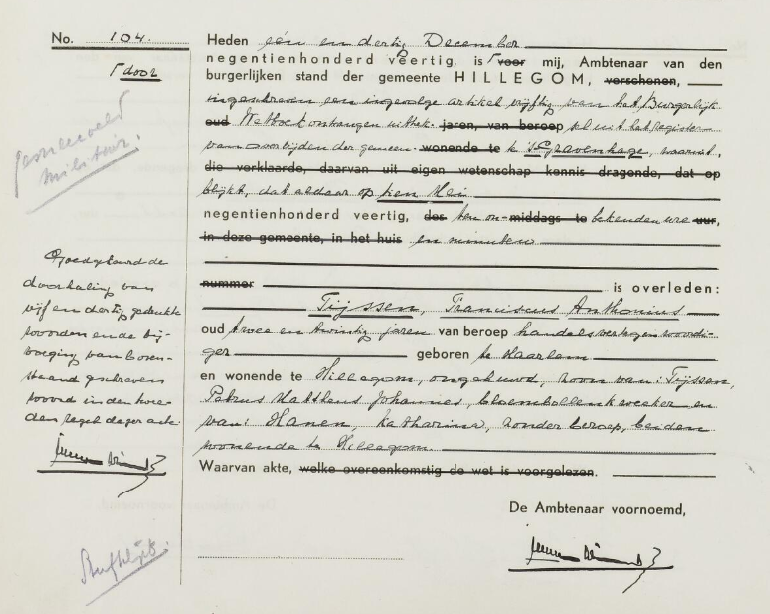 No. 104.
Heden één en dertig December
negentienhonderd veertig is voor mij, Ambtenaar van den
door
burgerlijken stand der gemeente HILLEGOM, verschenen,
ingeschreven een ingevolge artikel vijftig van het Burgerlijk
oud Wetboek ontvangen uittrek- jaren, van beroep sel uit het register
van overlijden der gemeen- wonende te te 's Gravenhage, waaruit
die verklaarde, daarvan uit eigen wetenschap kennis dragende, dat op
blijkt, dat aldaar op tien Mei
negentienhonderd veertig, des ten on- middags te bekenden ure uur,
in deze gemeente, in het huis en minuten
nummer is overleden:
Tijssen, Franciscus Anthonius
oud twee en twintig jaren van beroep handelsvertegenwoordi-
ger geboren te Haarlem
en wonende te Hillegom, ongehuwd, zoon van: Tijssen,
Petrus Mattheus Johannes, bloembollenkweeker en
van: Hanen, Katharina, zonder beroep, beiden
wonende te Hillegom.
Waarvan akte, welke overeenkomstig de wet is voorgelezen.
De Ambtenaar voornoemd,
gesneuveld
militair.
Goedgekeurd de
doorhaling van
vijf en dertig gedrukte
woorden en de bij-
voeging van boven-
staand geschreven
woord in den twee-
den regel dezer akte.